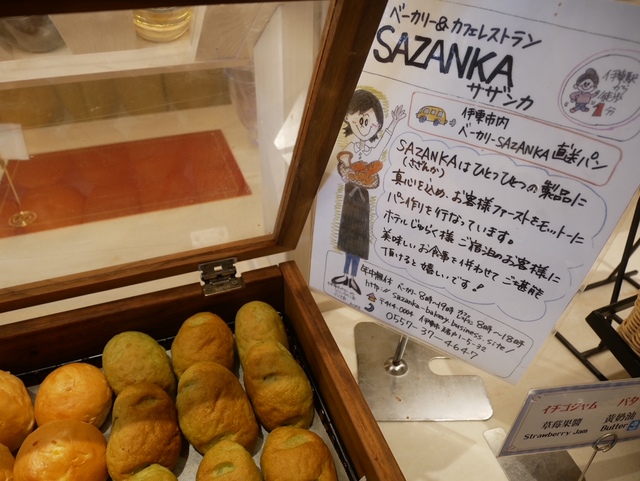 ベーカリー&カフェレストラン
SAZANKA
サザンカ
伊東駅
から
徒歩
分
伊東市内
ベーカリーSAZANKA 直送パン
SAZANKAはひとつひとつの製品に
(さざんか)
真心を込め、お客様ファーストをモットーに
パン作りを行なっています。
ホテルじゅらく様ご宿泊のお客様に
美味しいお食事と併わせてご堪能
頂けると嬉しいです!
年中無休 ベーカリー8時〜19時 8時〜18時
http://sazanka-bakery.business.site/
〒414-0004 伊東市 1-5-32
0557-37-4647
イチゴジャム バタ
草莓果醬 黃奶油
Strawberry Jam Butter